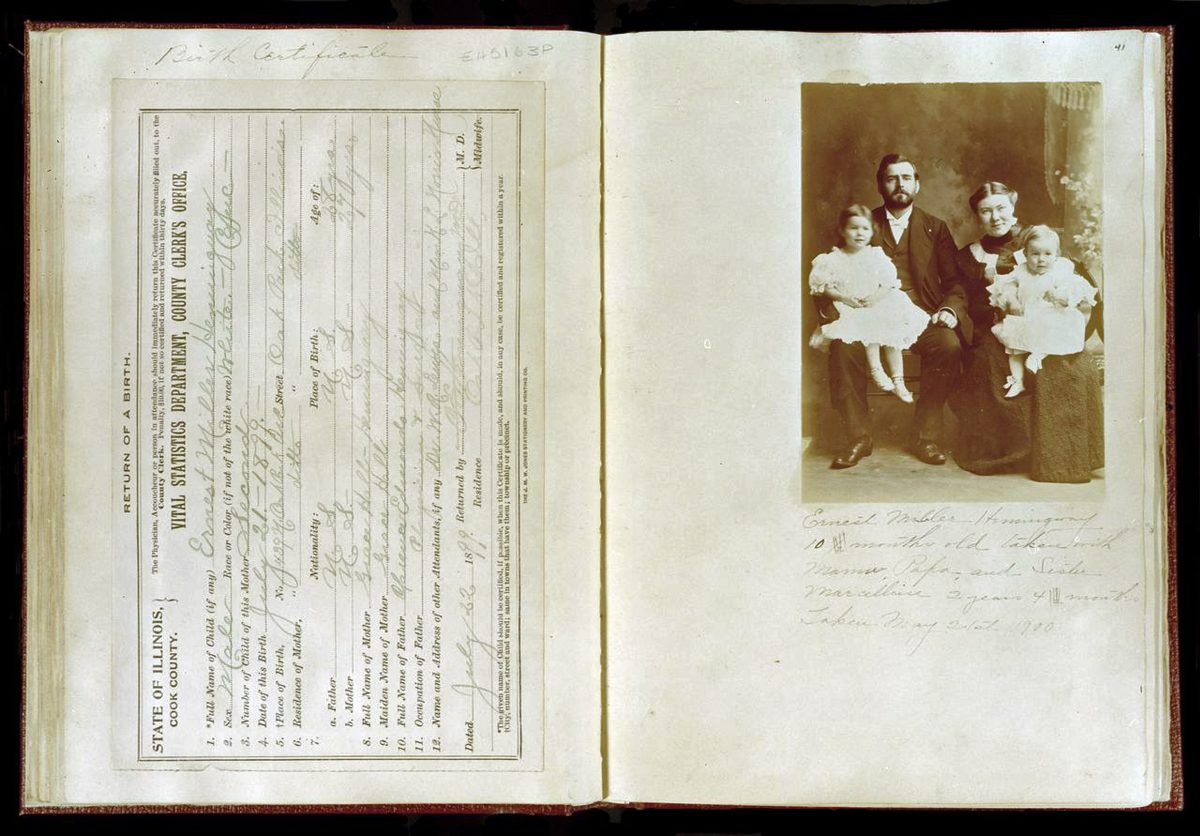 Birth Certificate
EH5163P
RETURN OF A BIRTH.
STATE OF ILLINOIS, }
COOK COUNTY.
The Physician, Accoucheur or person in attendance should immediately return this Certificate accurately filled out, to the
County Clerk. Penalty, $10.00, if not so certified and returned within thirty days.
VITAL STATISTICS DEPARTMENT, COUNTY CLERK'S OFFICE,
1. *Full Name of Child (if any) Ernest Miller Hemingway
2. Sex Male Race or Color (if not of the white race) White
3. Number of Child of this Mother Second
4. Date of this Birth July 21 - 1899.
5. †Place of Birth, No. Street, Oak Park Illinois.
6. Residence of Mother, " ditto " ditto
7. Nationality: Place of Birth: Age of:
a. Father U S U. S.
b. Mother U S U S 27 yrs
8. Full Name of Mother Grace Hall Hemingway
9. Maiden Name of Mother Grace Hall
10. Full Name of Father Hemingway
11. Occupation of Father Physician & Surgeon
12. Name and Address of other Attendants, if any
Dated July 22 1899 Returned by { M. D.
Residence { Midwife.
*The given name of Child should be certified, if possible, when this Certificate is made, and should, in any case, be certified and registered within a year.
†City, number, street and ward; same in towns that have them; township or precinct.
THE J. M. W. JONES STATIONERY AND PRINTING CO.
41
Ernest Miller Hemingway
10 months old taken with
Mama Papa and Sister
Marcelline 2 years 4 months
taken May 21st 1900